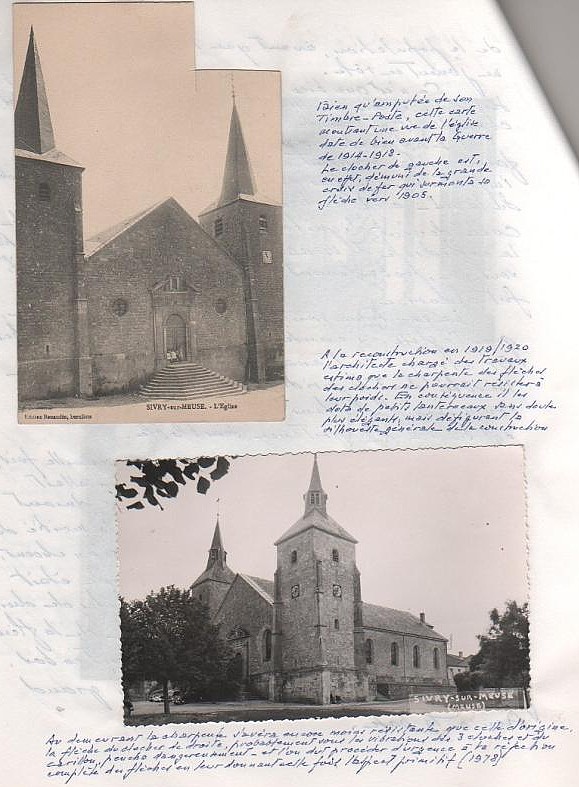 Bien qu'amputée de son
Timbre-Poste, cette carte
montrant une vue de l'église
date de bien avant la Guerre
de 1914-1918.
Le clocher de gauche est,
en effet, démuni de la grande
croix de fer qui surmonta sa
flèche vers 1905.
SIVRY-SUR-MEUSE. - L'Eglise
A la reconstruction en 1919/1920
l'architecte chargé des travaux
estima que la charpente des flèches
des clochers ne pourrait résister à
leur poids. En conséquence il les
dota de petits lanterneaux sans doute
plus élégants, mais défigurant la
silhouette générale de la construction
SIVRY-SUR-MEUSE
(MEUSE)
Au demeurant la charpente s'avéra encore moins résistante que celle d'origine,
la flèche du clocher de droite, probablement sous les vibrations des 3 cloches et du
carillon, pencha dangereusement et l'on dut procéder d'urgence à la réfection
complète des flèches en leur donnant cette fois l'aspect primitif (1978)